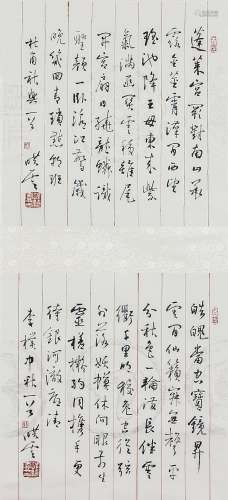 蓬萊宮闕對南山承
露金莖霄漢間西望
瑤池降王母東來紫
氣滿函關雲移雉尾
開宮扇日繞龍鱗識
聖顏一臥滄江驚歲
晚幾回青瑣點朝班
杜甫秋興一首
皓魄當空寶鏡昇
雲間仙籟寂無聲平
分秋色一輪滿長伴雲
衢千里明狡兔空從弦
外落妖蟆休向眼前生
靈槎擬約同攜手更
待銀河徹底清
李樸中秋一首